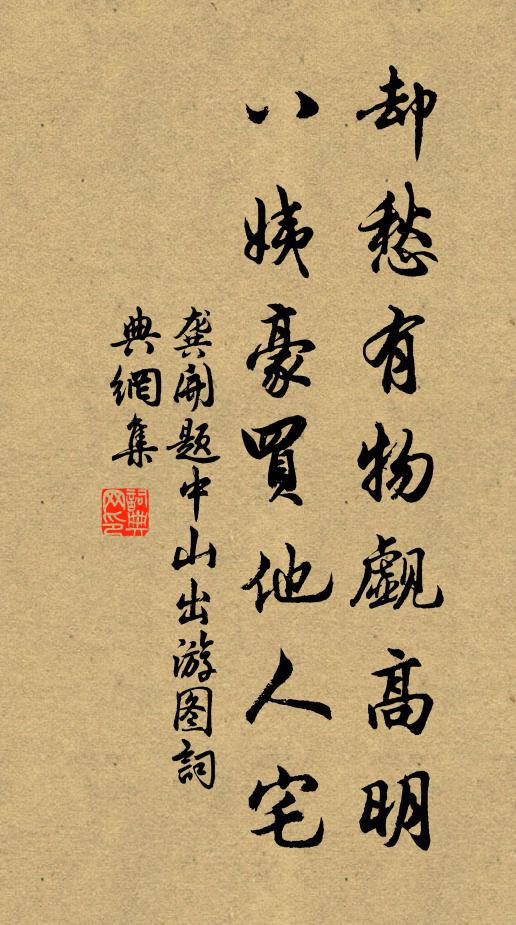 却愁有物觑高明
八姨豪買他人宅
龚開題中山出游图詞
典網集
詞典网印